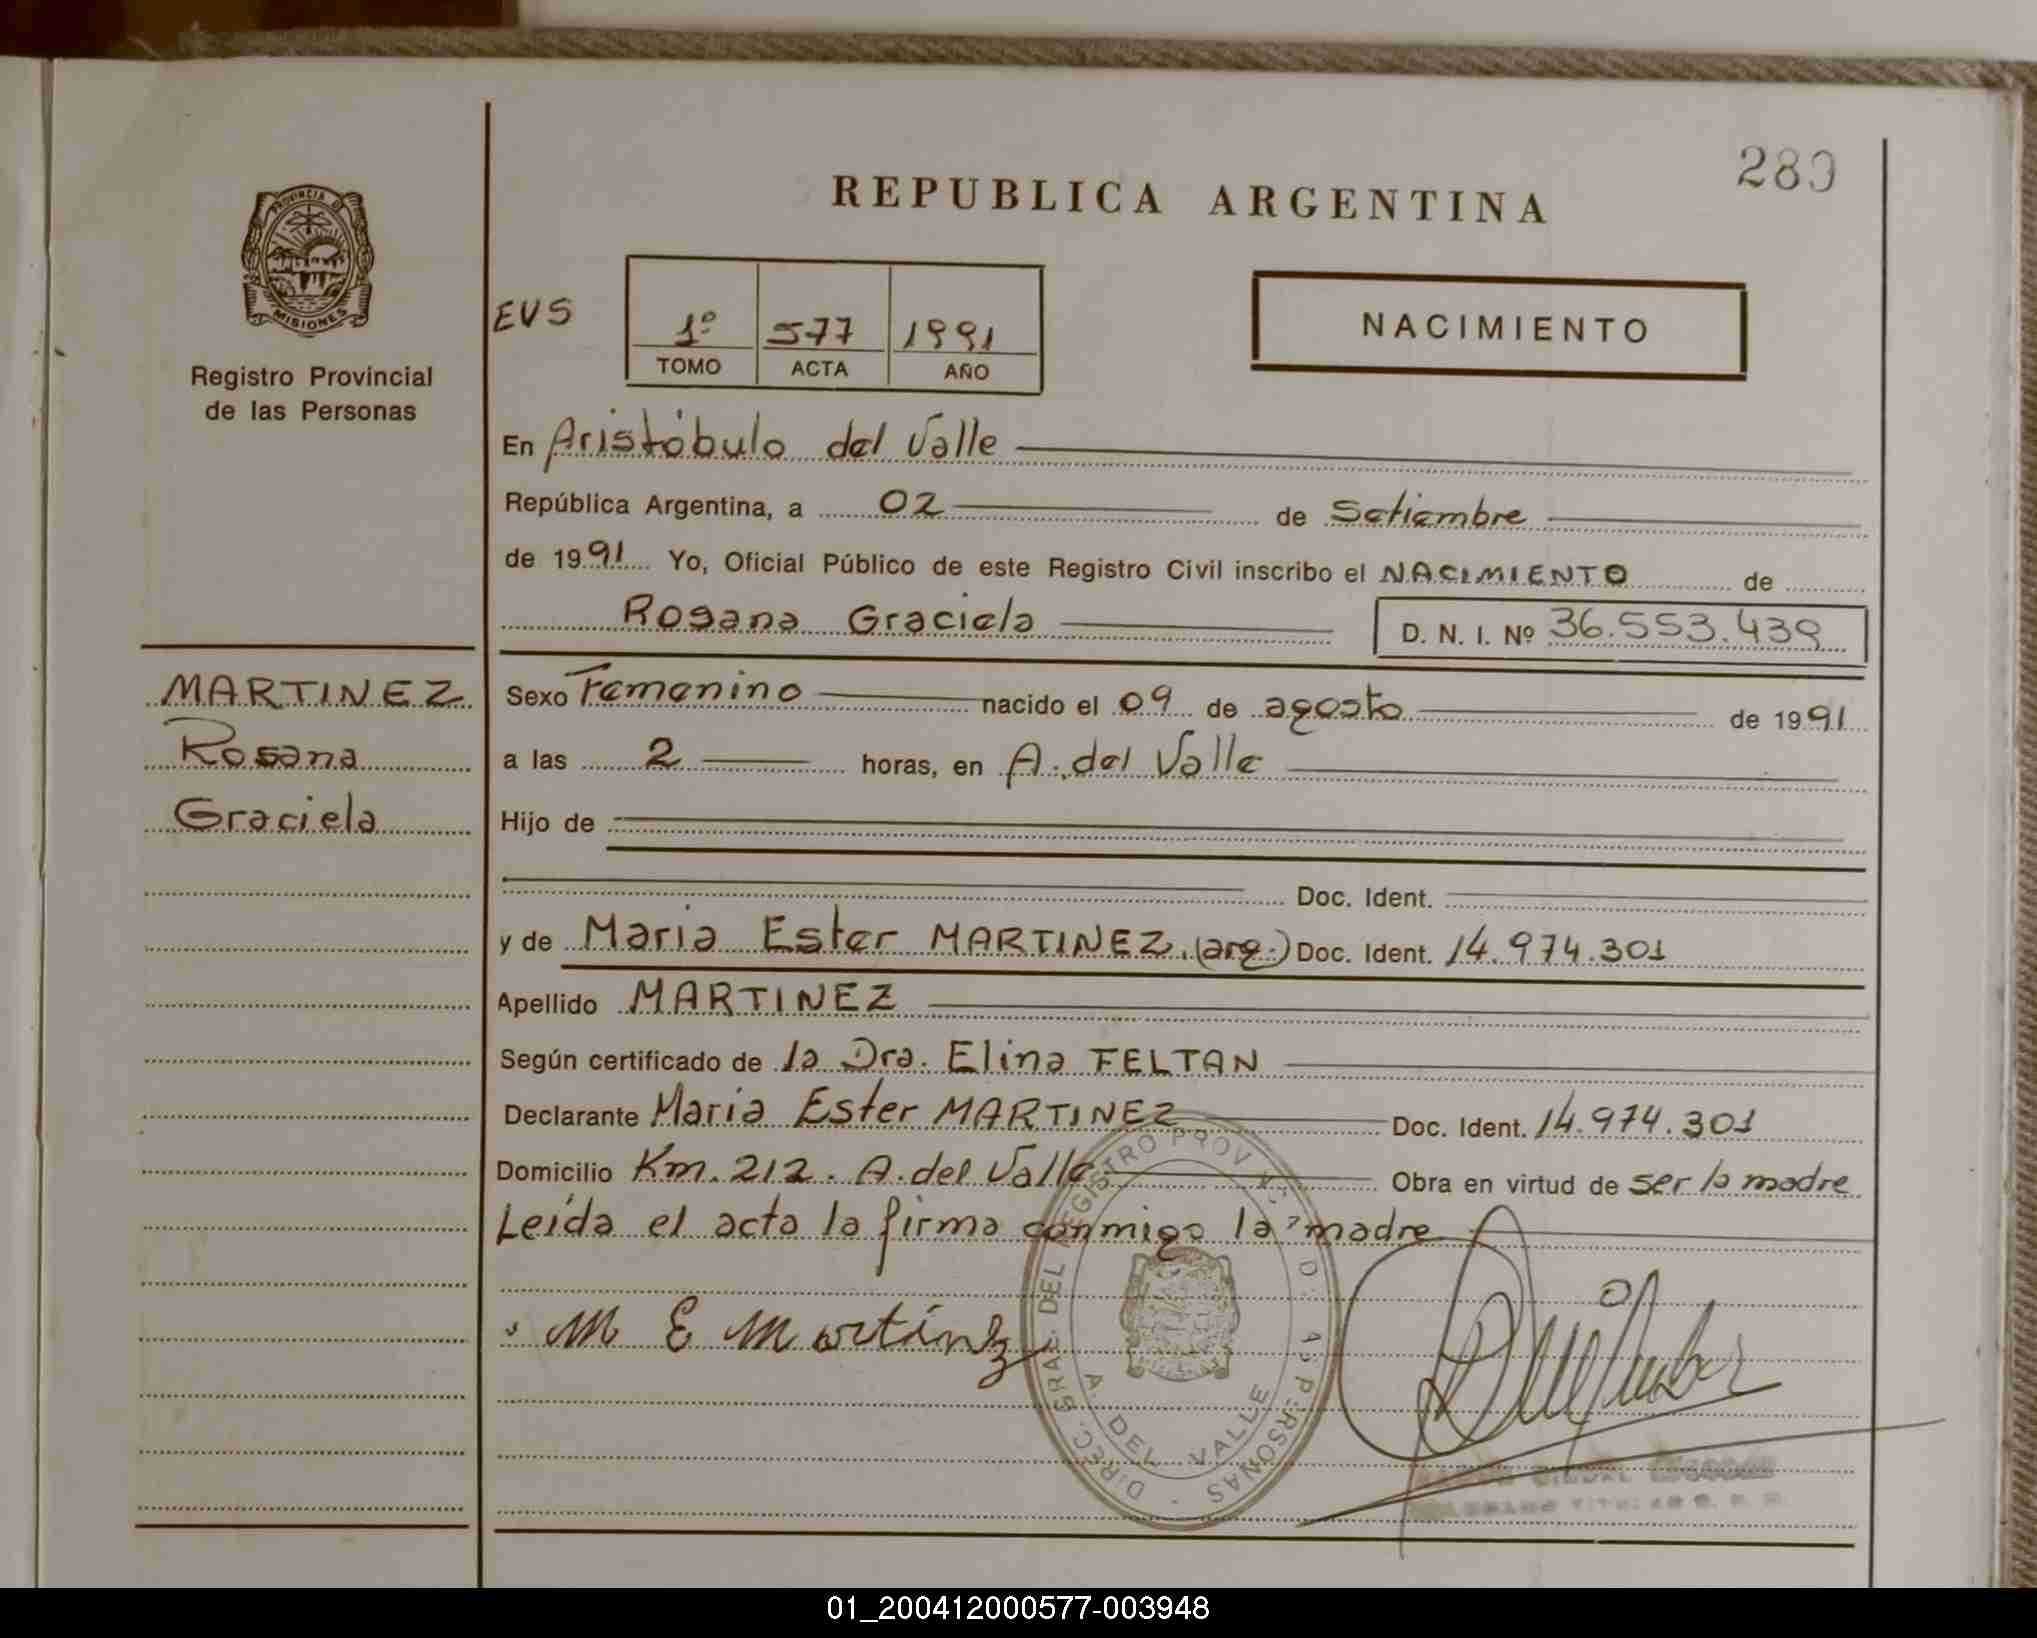 280
REPUBLICA ARGENTINA
PROVINCIA DE
MISIONES
Registro Provincial
de las Personas
EVS
1º 577 1991
TOMO ACTA AÑO
NACIMIENTO
En Aristóbulo del Valle
República Argentina, a 02 de Setiembre
de 1991 Yo, Oficial Público de este Registro Civil inscribo el NACIMIENTO de
Rosana Graciela D. N. I. Nº 36.553.439
MARTINEZ
Rosana
Graciela
Sexo Femenino nacido el 09 de agosto de 1991
a las 2 horas, en A. del Valle
Hijo de
Doc. Ident.
y de Maria Ester MARTINEZ (arg.) Doc. Ident. 14.974.301
Apellido MARTINEZ
Según certificado de la Dra. Elina FELTAN
Declarante Maria Ester MARTINEZ Doc. Ident. 14.974.301
Domicilio Km. 212. A. del Valle Obra en virtud de ser la madre
Leída el acta la firma conmigo la madre
M E Martinez
DIREC. GRAL. DEL REGISTRO PROV. D. PERSONAS
A. DEL VALLE
01_200412000577-003948